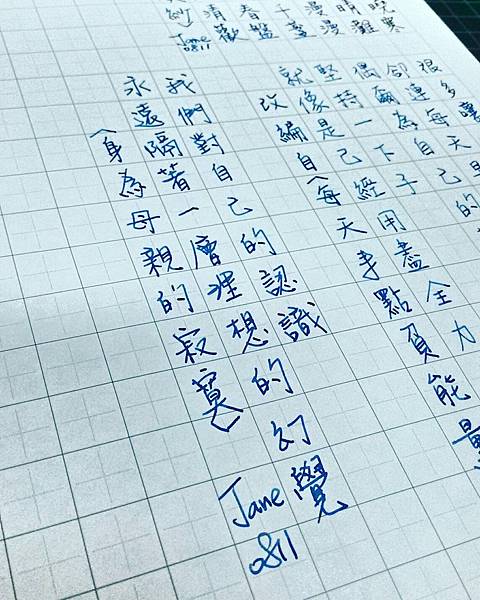 曉寒
晴灘
漫漫
午盞
春盤
清歡
紗
Jane
0811
很多
卻連每天早的
偶爾為自己
堅持一下子
就像是已經用盡全力
改編自〈每天手點負能量
我們對自己的認識
永遠隔著一層理想的幻覺
〈身為母親的寂寞〉
Jane
0811